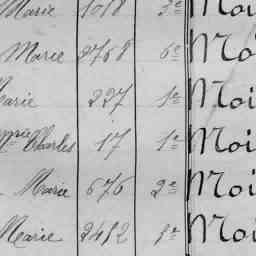 Marie 1018 3e Moi
Marie 2768 6e Moi
Marie 227 1e Moi
Charles 17 1e Moi
Marie 676 2e Moi
Marie 2412 Moi